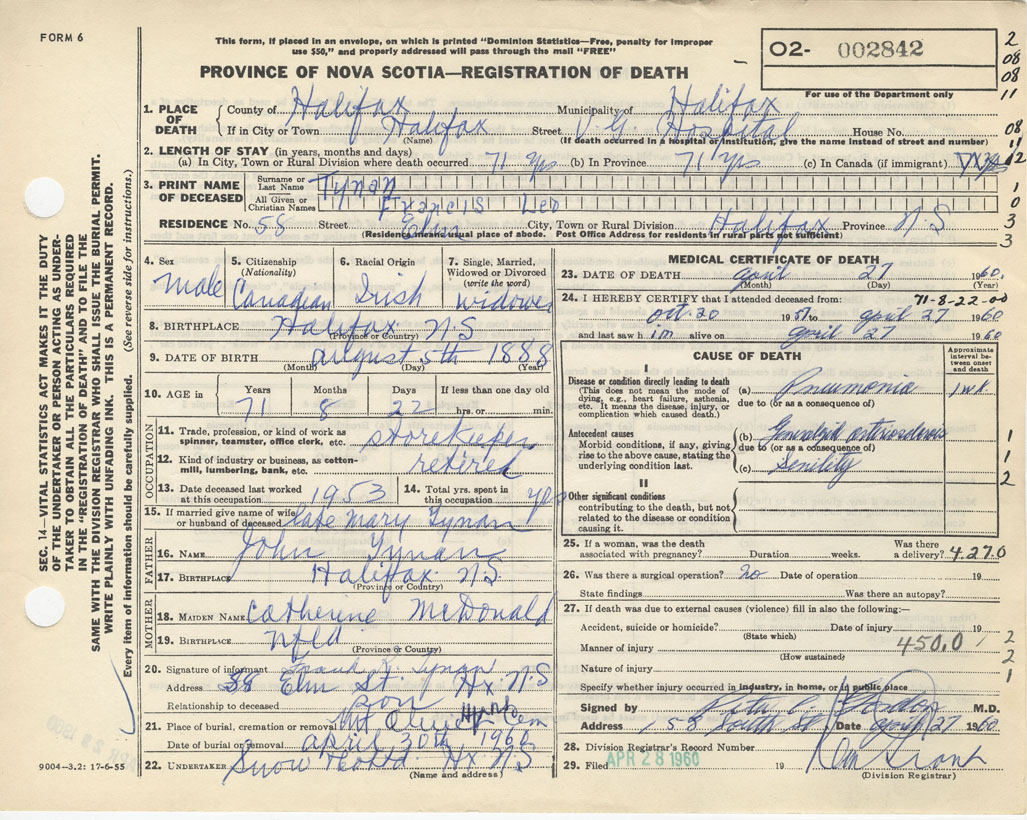 FORM 6
This form, if placed in an envelope, on which is printed "Dominion Statistics—Free, penalty for improper
use $50," and properly addressed will pass through the mail "FREE"
O2- 002842
For use of the Department only
2
08
08
11
PROVINCE OF NOVA SCOTIA—REGISTRATION OF DEATH
1. PLACE OF DEATH
County of Halifax Municipality of Halifax
If in City or Town Halifax Street V. G. Hospital House No.
(Name) (If death occurred in a hospital or institution, give the name instead of street and number)
08
11
2. LENGTH OF STAY (in years, months and days)
(a) In City, Town or Rural Division where death occurred 71 Yrs (b) In Province 71 Yrs (c) In Canada (if immigrant)
12
3. PRINT NAME OF DECEASED
Surname or Last Name Tynan
All Given or Christian Names Francis Leo
1
0
3
3
RESIDENCE No. 58 Street Elm City, Town or Rural Division Halifax Province N.S
(Residence means usual place of abode. Post Office Address for residents in rural parts not sufficient)
4. Sex Male
5. Citizenship (Nationality) Canadian
6. Racial Origin Irish
7. Single, Married, Widowed or Divorced (write the word) widower
8. BIRTHPLACE Halifax N.S
(Province or Country)
9. DATE OF BIRTH august 5th 1888
(Month) (Day) (Year)
10. AGE in Years 71 Months 8 Days 22 If less than one day old hrs. or min.
OCCUPATION
11. Trade, profession, or kind of work as spinner, teamster, office clerk, etc. storekeeper
12. Kind of industry or business, as cotton-mill, lumbering, bank, etc. retired
13. Date deceased last worked at this occupation 1953
14. Total yrs. spent in this occupation yrs
15. If married give name of wife or husband of deceased late Mary Tynan
FATHER
16. NAME John Tynan
17. BIRTHPLACE Halifax N.S.
(Province or Country)
MOTHER
18. MAIDEN NAME Catherine McDonald
19. BIRTHPLACE Nfld
(Province or Country)
20. Signature of informant Tynan
Address 58 Elm St. Hx. N.S
Relationship to deceased son
21. Place of burial, cremation or removal Mt Olivet Cem
Date of burial or removal april 30th 1960
22. UNDERTAKER Snow Hx N.S
(Name and address)
9004—3.2: 17-6-55
MEDICAL CERTIFICATE OF DEATH
23. DATE OF DEATH april 27 1960.
(Month) (Day) (Year)
24. I HEREBY CERTIFY that I attended deceased from: 71-8-22-00
oct. 20 1957 to april 27 1960
and last saw him alive on april 27 1960
CAUSE OF DEATH
Approximate interval between onset and death
I
Disease or condition directly leading to death
(This does not mean the mode of dying, e.g., heart failure, asthenia, etc. It means the disease, injury, or complication which caused death.)
(a) Pneumonia 1 wk.
due to (or as a consequence of)
Antecedent causes
Morbid conditions, if any, giving rise to the above cause, stating the underlying condition last.
(b) Generalized arteriosclerosis
due to (or as a consequence of)
(c) Senility
1
1
2
II
Other significant conditions contributing to the death, but not related to the disease or condition causing it.
25. If a woman, was the death associated with pregnancy? Duration weeks. Was there a delivery? 4.27.0
26. Was there a surgical operation? no Date of operation 19
State findings Was there an autopsy?
27. If death was due to external causes (violence) fill in also the following:—
Accident, suicide or homicide? Date of injury 19
(State which)
Manner of injury 450.0
(How sustained)
2
2
1
Nature of injury
Specify whether injury occurred in industry, in home, or in public place
Signed by M.D.
Address 158 South St Date april 27 1960
28. Division Registrar's Record Number
29. Filed APR 28 1960 19
(Division Registrar)
SEC. 14—VITAL STATISTICS ACT MAKES IT THE DUTY
OF THE UNDERTAKER OR PERSON ACTING AS UNDER-
TAKER TO OBTAIN ALL THE PARTICULARS REQUIRED
IN THE "REGISTRATION OF DEATH" AND TO FILE THE
SAME WITH THE DIVISION REGISTRAR WHO SHALL ISSUE THE BURIAL PERMIT.
WRITE PLAINLY WITH UNFADING INK. THIS IS A PERMANENT RECORD.
Every item of information should be carefully supplied. (See reverse side for instructions.)